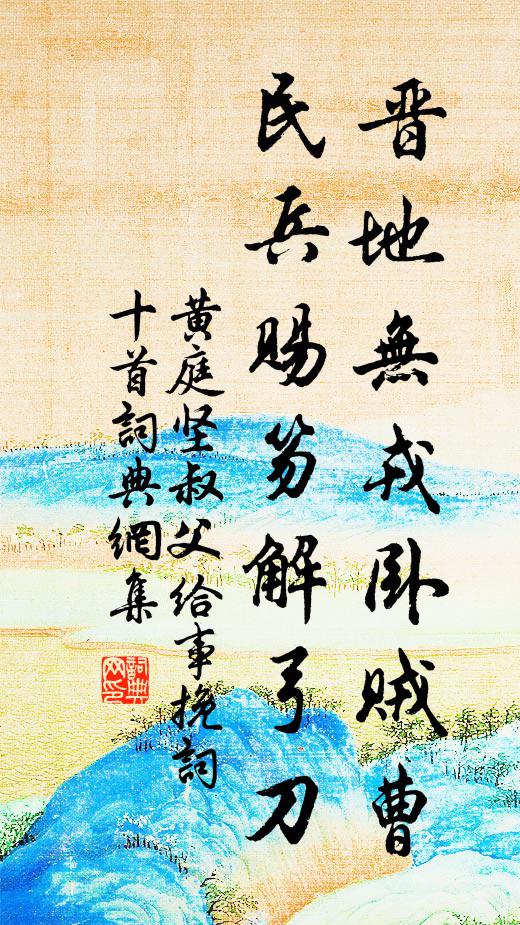 晋地無戎卧贼曹
民兵賜笏解弓刀
黄庭坚叔父给事挽詞
十首詞典網集
詞典網印